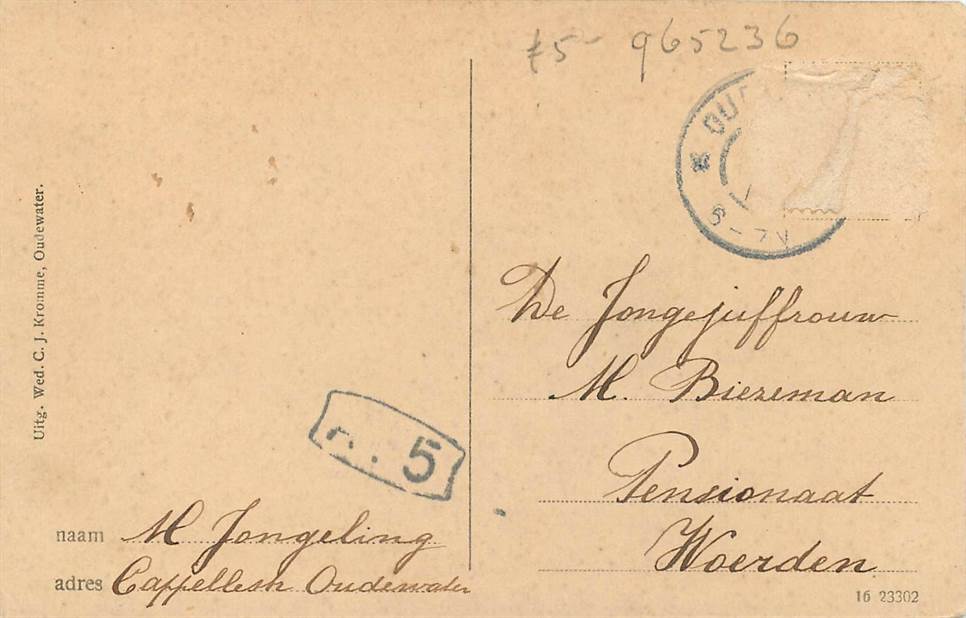 £5- 965236
OUD
6-7V
Uitg. Wed. C. J. Kromme, Oudewater.
De Jongejuffrouw
M. Biezeman
Pensionaat
Woerden
5
naam M Jongeling
adres Cappellestr Oudewater
16 23302